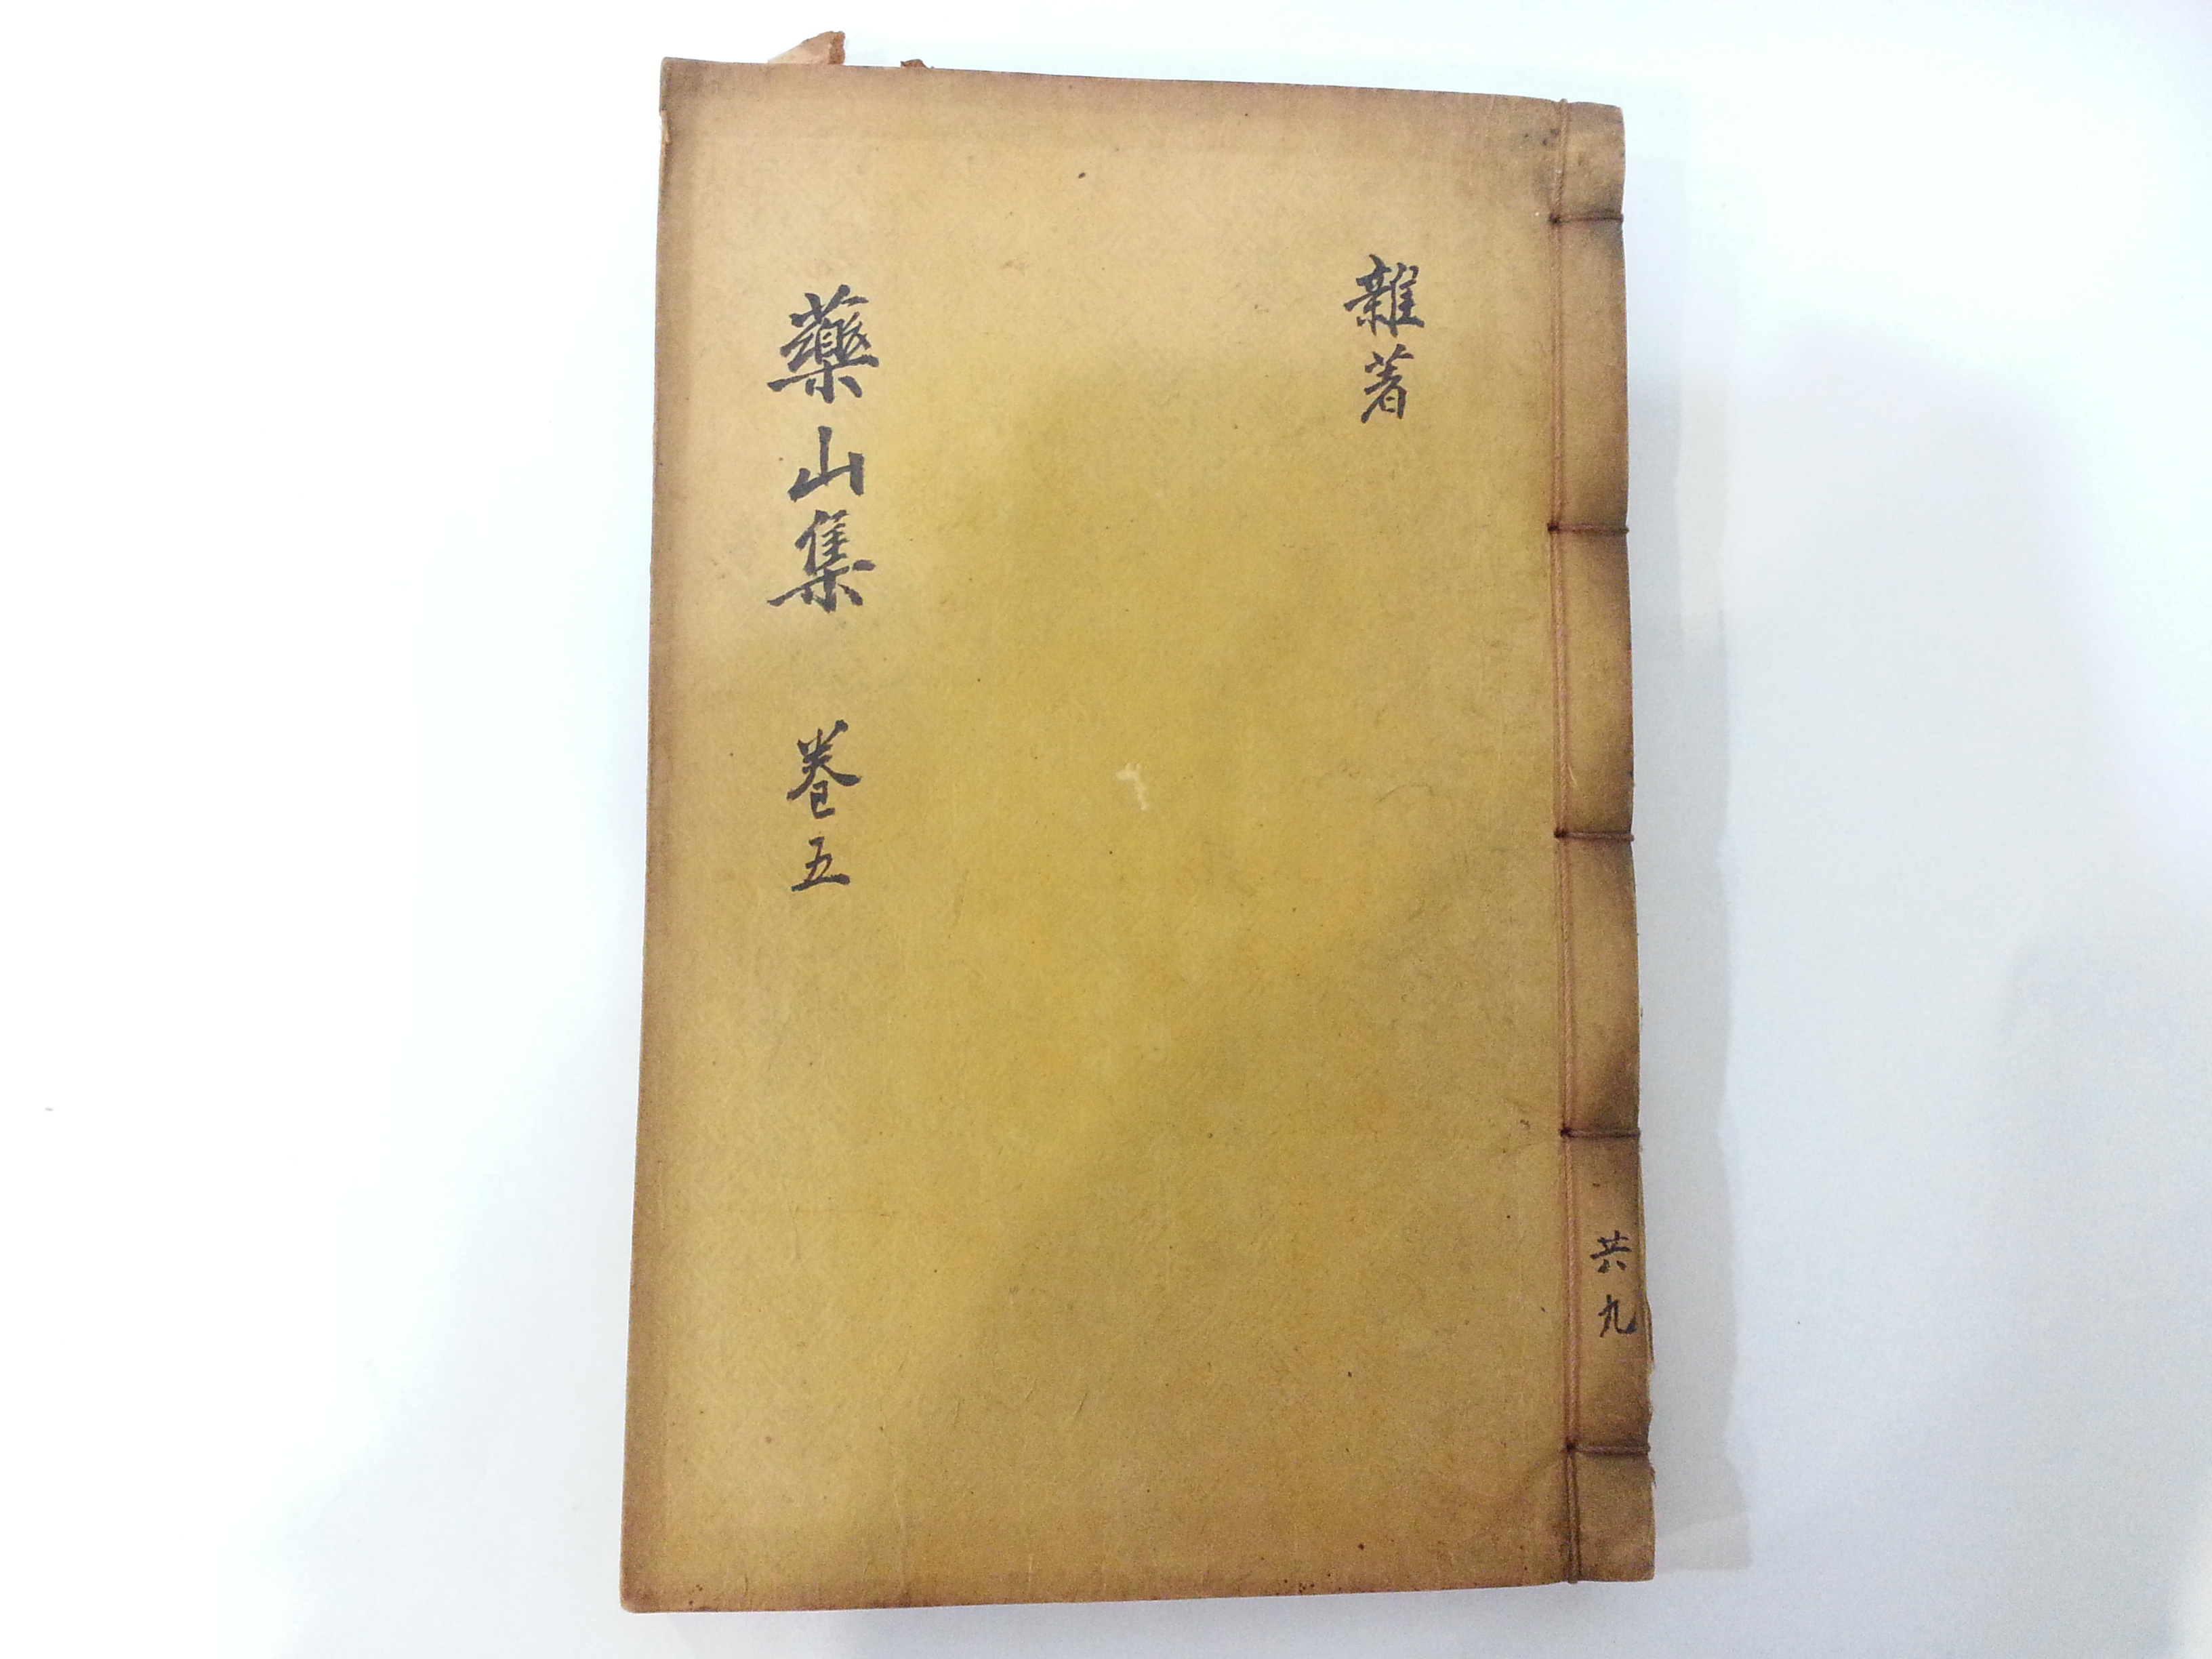 雜著
藥山集 卷五
共九